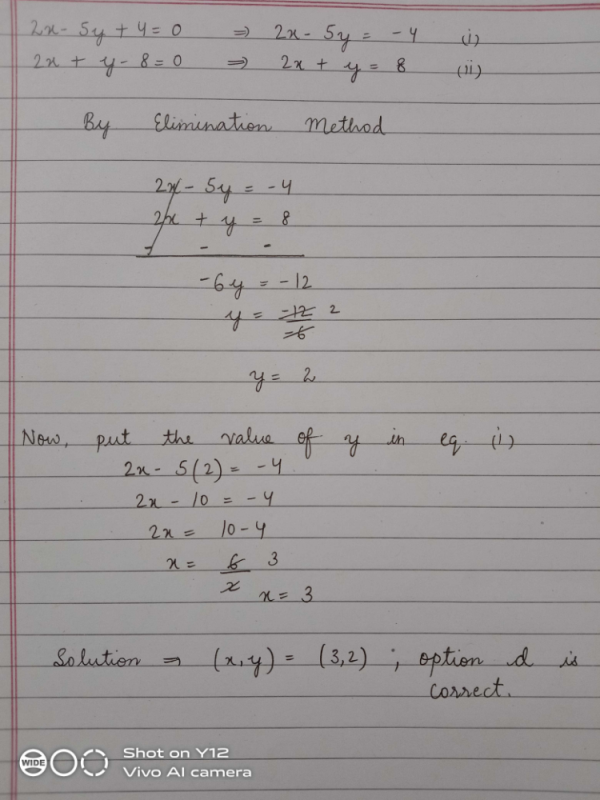 2x - 5y + 4 = 0 ⇒ 2x - 5y = -4 (i)
2x + y - 8 = 0 ⇒ 2x + y = 8 (ii)
By Elimination Method
2x - 5y = -4
2x + y = 8
- - -
-6y = -12
y = -12 2
-6
y = 2
Now, put the value of y in eq. (i)
2x - 5(2) = -4
2x - 10 = -4
2x = 10 - 4
x = 6 3
2
x = 3
Solution ⇒ (x, y) = (3, 2) ; option d is
correct.
WIDE
Shot on Y12
Vivo AI camera